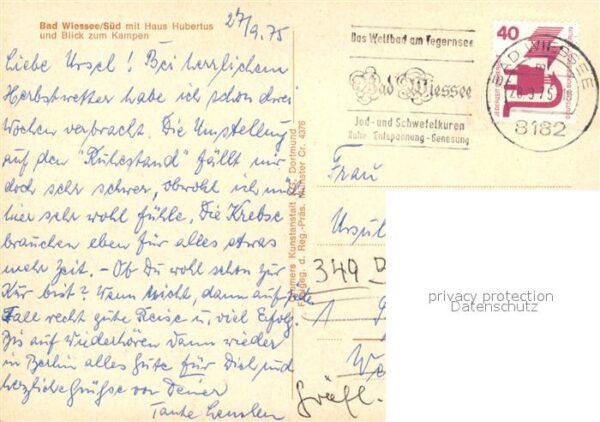 Bad Wiessee/Süd mit Haus Hubertus
und Blick zum Kampen
27/9.75
Liebe Ursel! Bei herrlichem
Herbstwetter habe ich schon drei
Wochen verbracht. Die Umstellung
auf den "Ruhestand" fällt mir
doch sehr schwer, obwohl ich mich
hier sehr wohl fühle. Die Krebse
brauchen eben für alles etwas
mehr Zeit. - Ob Du wohl schon zur
Kur bist? Wenn nicht, dann auf jeden
Fall recht gute Reise u. viel Erfolg.
Bis auf Wiederhören dann wieder
in Berlin alles Gute für Dich und
herzliche Grüße von Deiner
Tante
Kunstanstalt KG. Dortmund
Freigeg. d. Reg.-Präs. Münster Cr. 4376
Das Weltbad am Tegernsee
Bad Wiessee
Jod- und Schwefelkuren
Ruhe-Entspannung-Genesung
40
JEDERZEIT SICHERHEIT
DEUTSCHE BUNDESPOST
BAD WIESSEE
28.9.75
8182
Frau
Ursul
349 D
1
We
Gräfl.
privacy protection
Datenschutz